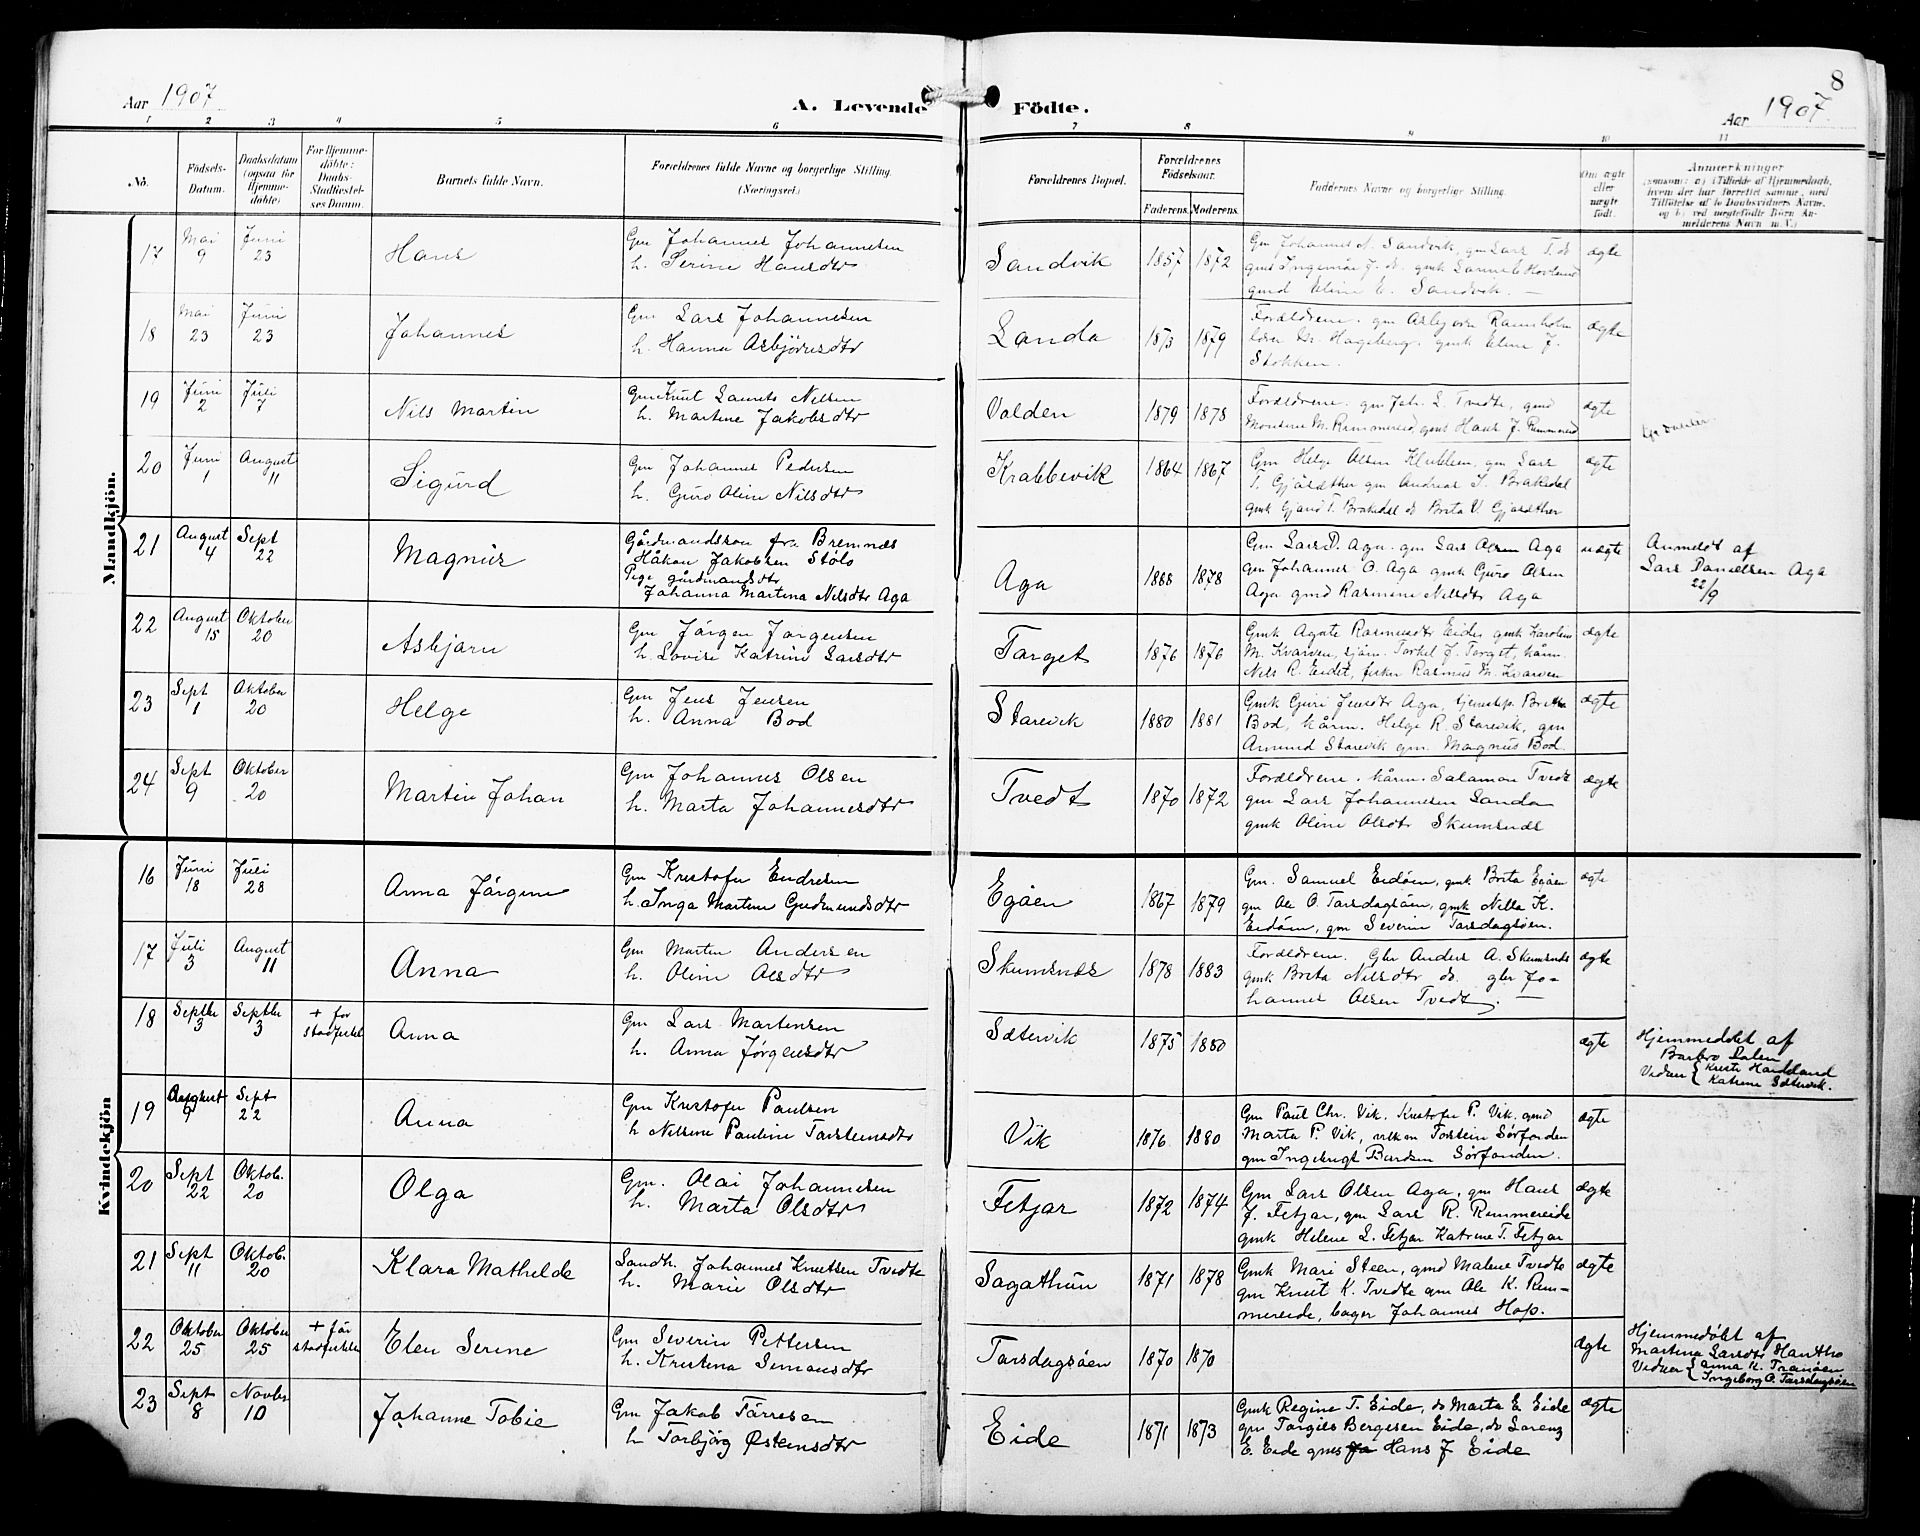 8
Aar 1907
A. Levende Fødte.
Aar 1907.
1 2 3 4 5 6 7 8 9 10 11
No.
Fødsels-Datum.
Daabsdatum (ogsaa for Hjemme-døbte)
For Hjemme-døbte: Daabs-Stadfæstel-ses Daum.
Barnets fulde Navn.
Forældrenes fulde Navne og borgerlige Stilling. (Næringsvei.)
Forældrenes Bopæl.
Forældrenes Fødselsaar.
Faderens. Moderens.
Faddernes Navne og borgerlige Stilling.
Om ægte eller uægte født.
Anmærkninger
(saasom: a) i Tilfælde af Hjemmedaab, hvem der har forrettet samme, med Tilføielse af to Daabsvidners Navne, og b) ved uægtefødte Børn An-melderens Navn m. V.)
Mandkjön.
17 Mai 9 Juni 23 Hans
Gm Johannes Johannesen
h. Serine Hansdtr
Sandvik 1857 1872
Gm Johannes N. Sandvik, gm Lars T. do
gmd Ingemar J. do. gmk Hovland
gmd Eline E. Sandvik. ægte
18 Mai 23 Juni 23 Johannes
Gm Lars Johannesen
h. Hanna Asbjörnsdtr
Landa 1873 1879
Forældrene. gm Asbjørn Ramsholm
lærer M. Hageberg. gmk Eline J.
Stokken. ægte
19 Juni 2 Juli 7 Nils Martin
Gm Knut Laurits Nilsen
h. Martine Jakobsdtr
Valden 1879 1878
Forældrene. gm Joh. L. Tvedte, gmd
Montine M. Rimmereid, gms Hans J. Rimmereid ægte
20 Juni 1 August 11 Sigurd
Gm Johannes Pedersen
h. Guro Oline Nilsdtr
Krabbevik 1864 1867
Gm Helge Olsen Klubben, gm Lars
T. Gjøsæther gm Andreas T. Brakedal
gmk Gjønd T. Brakedal do Brita V. Gjøsæther ægte
21 August 4 Sept 22 Magnus
Gårdmandsson fra Bremnes
Håkon Jakobsen Stolo
Pige gårdmandsdtr
Johanna Martena Nilsdtr Aga
Aga 1888 1878
Gm Lars D. Aga. gm Lars Olsen Aga
gm Johannes O. Aga gmk Guro Olsen
Aga gmd Rasmine Nilsdtr Aga uægte
Anmeldt af
Lars Danielsen Aga
22/9
22 August 15 Oktober 20 Asbjørn
Gm Jørgen Jørgensen
h. Lovise Katrine Larsdtr
Torget 1876 1876
Gmk Agate Rasmusdtr Eide, gmk Karoline
M. Kvarven, sjøm. Torkel J. Torget, kårm.
Nils R. Eidet, fisker Rasmus M. Kvarven ægte
23 Sept 1 Oktober 20 Helge
Gm Jens Jensen
h. Anna Bod
Starevik 1880 1881
Gmk Guri Jensdtr Aga, tjenestep. Britha
Bod, kårm. Helge R. Starevik, gm
Amund Starevik gm. Magnus Bod. ægte
24 Sept 9 Oktober 20 Martin Johan
Gm Johannes Olsen
h. Marta Johannesdtr
Tvedt 1870 1872
Forældrene. kårm. Salamon Tvedt
gm Lars Johannesen Landa
gmk Oline Olsdtr Skumsnes ægte
Kvindekjön
16 Juni 18 Juli 28 Anna Jørgine
Gm Kristofer Endresen
h. Inga Martine Gudmundsdtr
Egåen 1867 1879
Gm. Samuel Eidøen, gmk Brita Egåen
gm Ole O. Torsdagsøen, gmk Nella K.
Eidøen, gm Severin Torsdagsøen. ægte
17 Juli 3 August 11 Anna
Gm Martin Andersen
h. Oline Olsdtr
Skumsnes 1878 1883
Forældrene. Gbr Anders A. Skumsnes
gmk Brita Nilsdtr do. gbr Jo-
hannes Olsen Tvedt. ægte
18 Septbr 3 Septbr 3 + før stadfæstelse Anna
Gm Lars Martensen
h. Anna Jørgensdtr
Sætervik 1875 1880 ægte
Hjemmedøbt af
Barbro Salen
Vidner { Kristi Handeland
Katrine Sætervik.
19 August 9 Sept 22 Anna
Gm Kristofer Paulsen
h Nilsine Pauline Torsteinsdtr
Vik 1876 1880
Gm Paul Chr. Vik. Kristofer P. Vik, gmd
Marta P. Vik, Torstein Sörfonden
gm Ingebrigt Bårdsen Sörfonden. ægte
20 Sept 22 Oktob. 20 Olga
Gm. Olai Johannesen
h. Marta Olsdtr
Fetjar 1872 1874
Gm Lars Olsen Aga, gm Hans
J. Fetjar, gm Lars R. Rimmereide
gmk Helene L. Fetjar Katrine T. Fetjar ægte
21 Sept 11 Oktob. 20 Klara Mathilde
Landh. Johannes Knutsen Tvedte
h. Marie Olsdtr
Sagathun 1871 1878
Gmk Mari Steen, gmd Malene Tvedte
gm Knut K. Tvedte gm Ole K. Rim-
mereide, bager Johannes Hop. ægte
22 Oktober 25 Oktober 25 + før stadfæstelse Elen Serine
Gm Severin Pettersen
h. Kristena Simonsdtr
Torsdagsöen 1870 1870 ægte
Hjemmedøbt af
Martina Larsdtr Hantho
Vidner { Anna K. Tranøen
Ingeborg O. Torsdagsöen
23 Sept 8 Novbr 10 Johanne Tobie
Gm Jakob Tørresen
h Torbjørg Østensdtr
Eide 1871 1873
Gmk Regine T. Eide, do Marta E Eide
gm Torgils Bergesen Eide, do Lorenz
E. Eide gmss Hans J Eide ægte